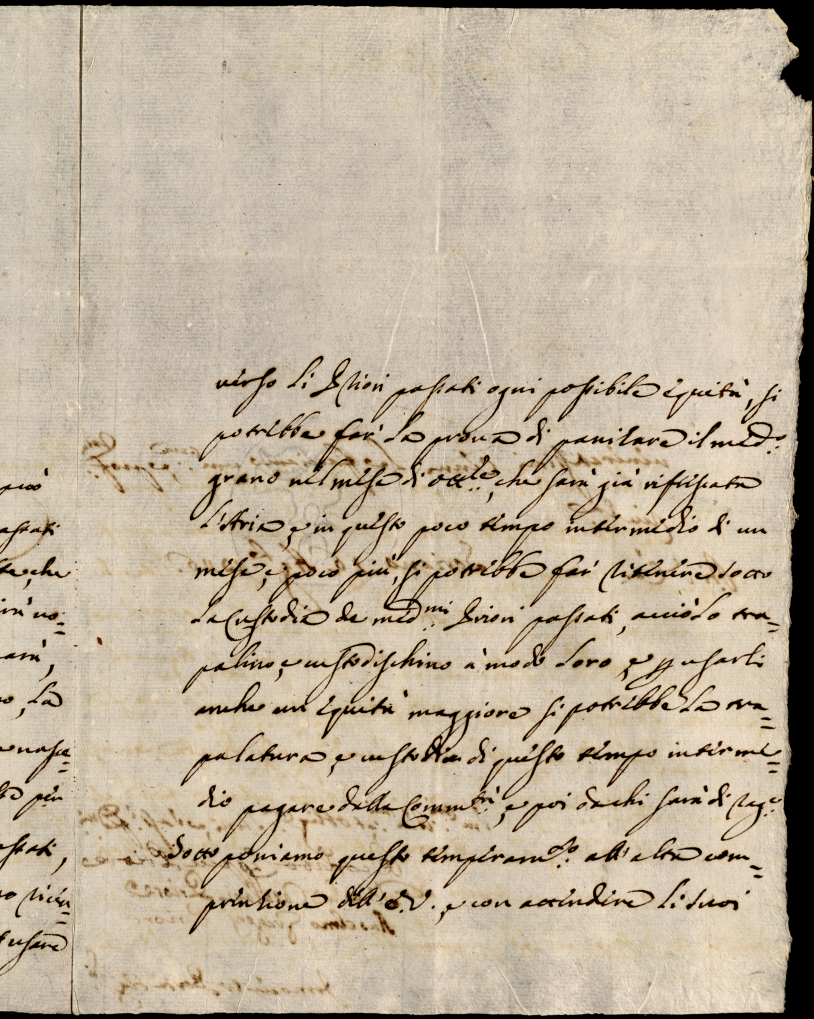 più
passati
che
no=
arà,
o, La
e nasce=
per
passati,
usare
verso li Priori passati ogni possibile equità, si
potrebbe far la prova di panizare il med.º
grano nel mese di ott.le, che sarà già rifrescata
L'Aria, e in questo poco tempo intermedio di un
mese, e poco più, si potrebbe far ritenere sotto
la Custodia de med.mi Priori passati, acciò lo tra=
palino, e custodischino à modo loro, e p usarli
anche un equità maggiore si potrebbe la tra=
palatura, e custodia di questo tempo interme=
dio pagare dalla Comm.tà, e poi da chi sarà di rag.e
Sotto poniamo questo temperam.to all'alta com=
prensione dell'E.V., e con attendere li suoi